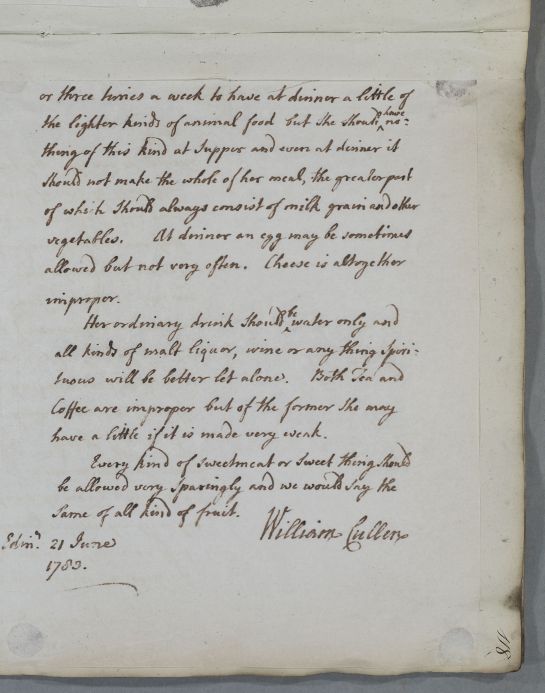 or three times a week to have at dinner a little of
the lighter kinds of animal food but she should have no=
thing of this kind at Supper and even at dinner it
should not make the whole of her meal, the greater part
of which should always consist of milk grain and other
vegetables. At dinner an egg may be sometimes
allowed but not very often. Cheese is altogether
improper.
Her ordinary drink should be water only and
all kinds of malt liquor, wine or any thing Spiri=
tuous will be better let alone. Both Tea and
Coffee are improper but of the former she may
have a little if it is made very weak.
Every kind of sweetmeat or sweet thing should
be allowed very sparingly and we would say the
same of all kind of fruit.
William Cullen
Edinr. 21 June
1783.
118